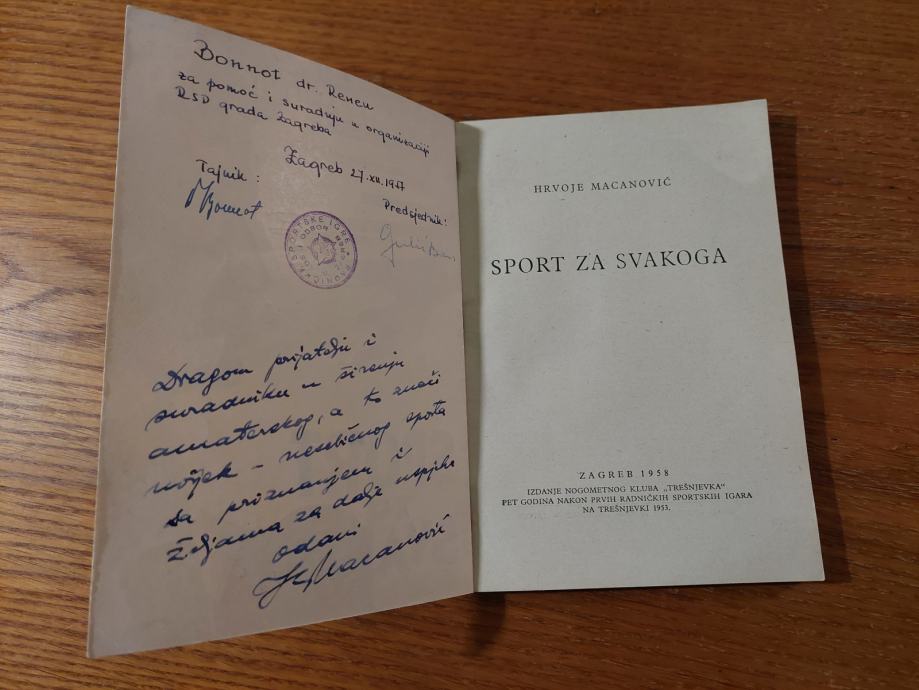 Bonnot dr. Reneu
za pomoć i suradnju u organizaciji
RSD grada Zagreba
Zagreb 27.XII.19
Tajnik:
Predsjednik:
SPORTSKE IGRE
ODBOR
Dragom prijatelju i
suradniku u širenju
amaterskog, a to znači
uvijek - nesebičnog sporta
sa priznanjem i
željama za dalje uspjehe
odani
HMacanović
HRVOJE MACANOVIĆ
SPORT ZA SVAKOGA
ZAGREB 1958
IZDANJE NOGOMETNOG KLUBA „TREŠNJEVKA"
PET GODINA NAKON PRVIH RADNIČKIH SPORTSKIH IGARA
NA TREŠNJEVKI 1953.